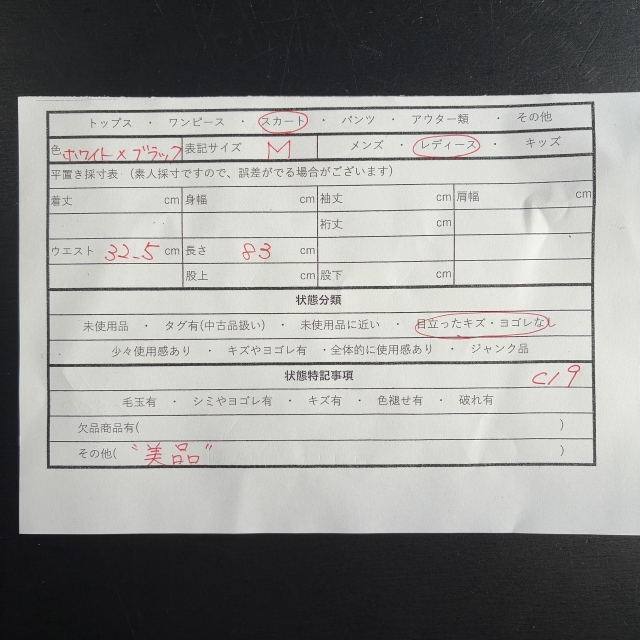 トップス ・ ワンピース ・ スカート ・ パンツ ・ アウター類 ・ その他
色 ホワイト×ブラック 表記サイズ M メンズ ・ レディース ・ キッズ
平置き採寸表（素人採寸ですので、誤差がでる場合がございます）
着丈 cm 身幅 cm 袖丈 cm 肩幅 cm
裄丈 cm
ウエスト 32.5 cm 長さ 83 cm
股上 cm 股下 cm
状態分類
未使用品 ・ タグ有(中古品扱い) ・ 未使用品に近い ・ 目立ったキズ・ヨゴレなし
少々使用感あり ・ キズやヨゴレ有 ・全体的に使用感あり ・ ジャンク品
状態特記事項 C19
毛玉有 ・ シミやヨゴレ有 ・ キズ有 ・ 色褪せ有 ・ 破れ有
欠品商品有( )
その他( "美品" )